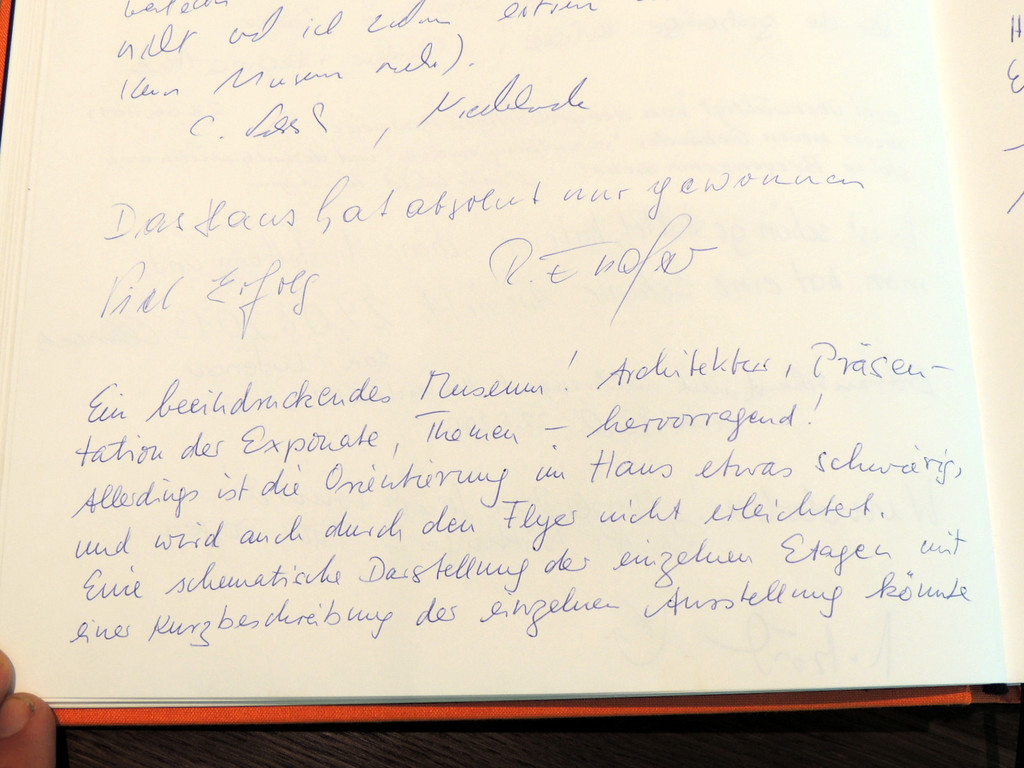 nicht und ich schon
kein Museum mehr).
C. , Niederlande
Das Haus hat absolut nur gewonnen
Viel Erfolg
Ein beeindruckendes Museum! Architektur, Präsen-
tation der Exponate, Themen – hervorragend!
Allerdings ist die Orientierung im Haus etwas schwierig,
und wird auch durch den Flyer nicht erleichtert.
Eine schematische Darstellung der einzelnen Etagen mit
einer Kurzbeschreibung der einzelnen Ausstellung könnte